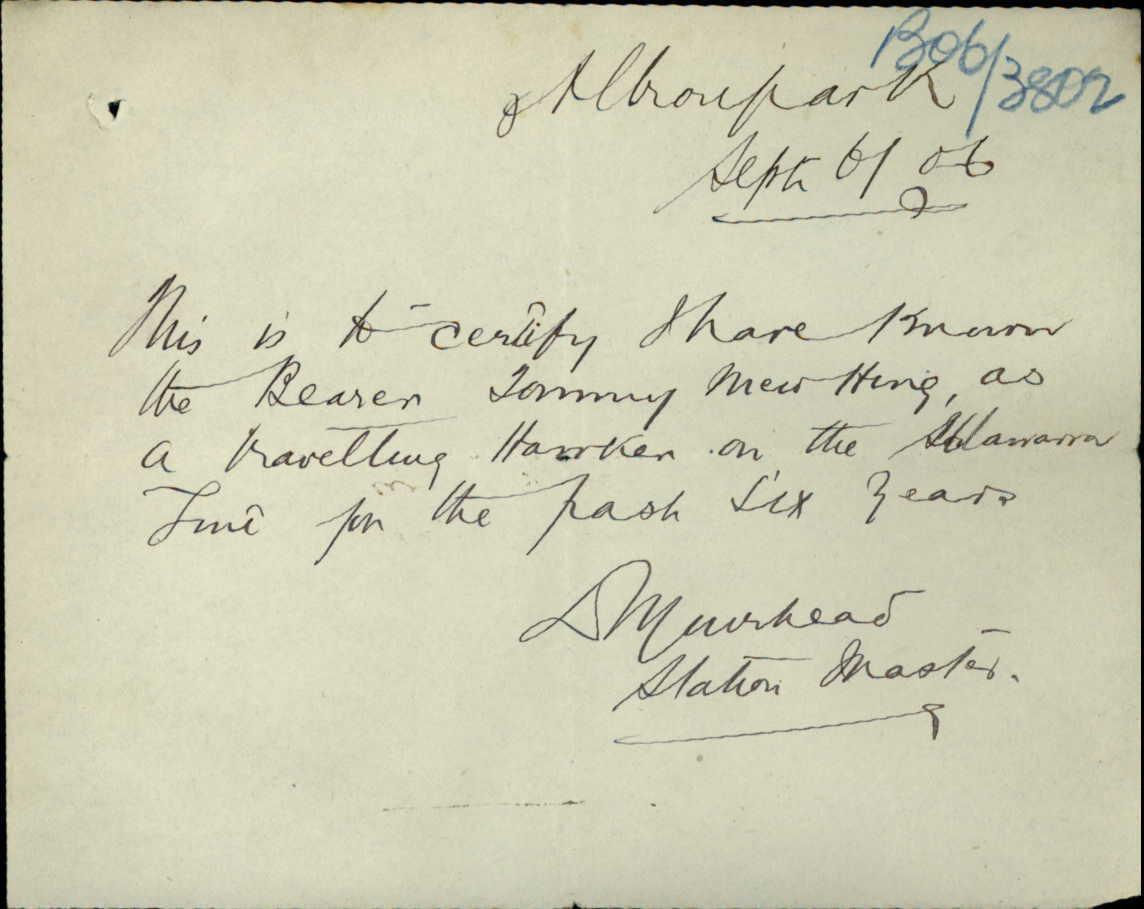 B06/3802
Albionpark
Sept 6/ 06
This is to certify I have Known
the Bearer Tommy Mew Hing, as
a travelling Hawker on the Illawarra
Line for the past Six Years
Muirhead
Station Master.